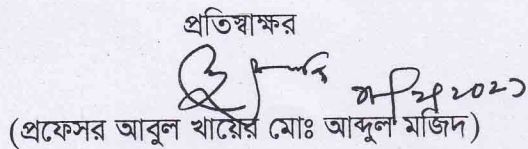 প্রতিস্বাক্ষর
(প্রফেসর আবুল খায়ের মোঃ আব্দুল মজিদ)